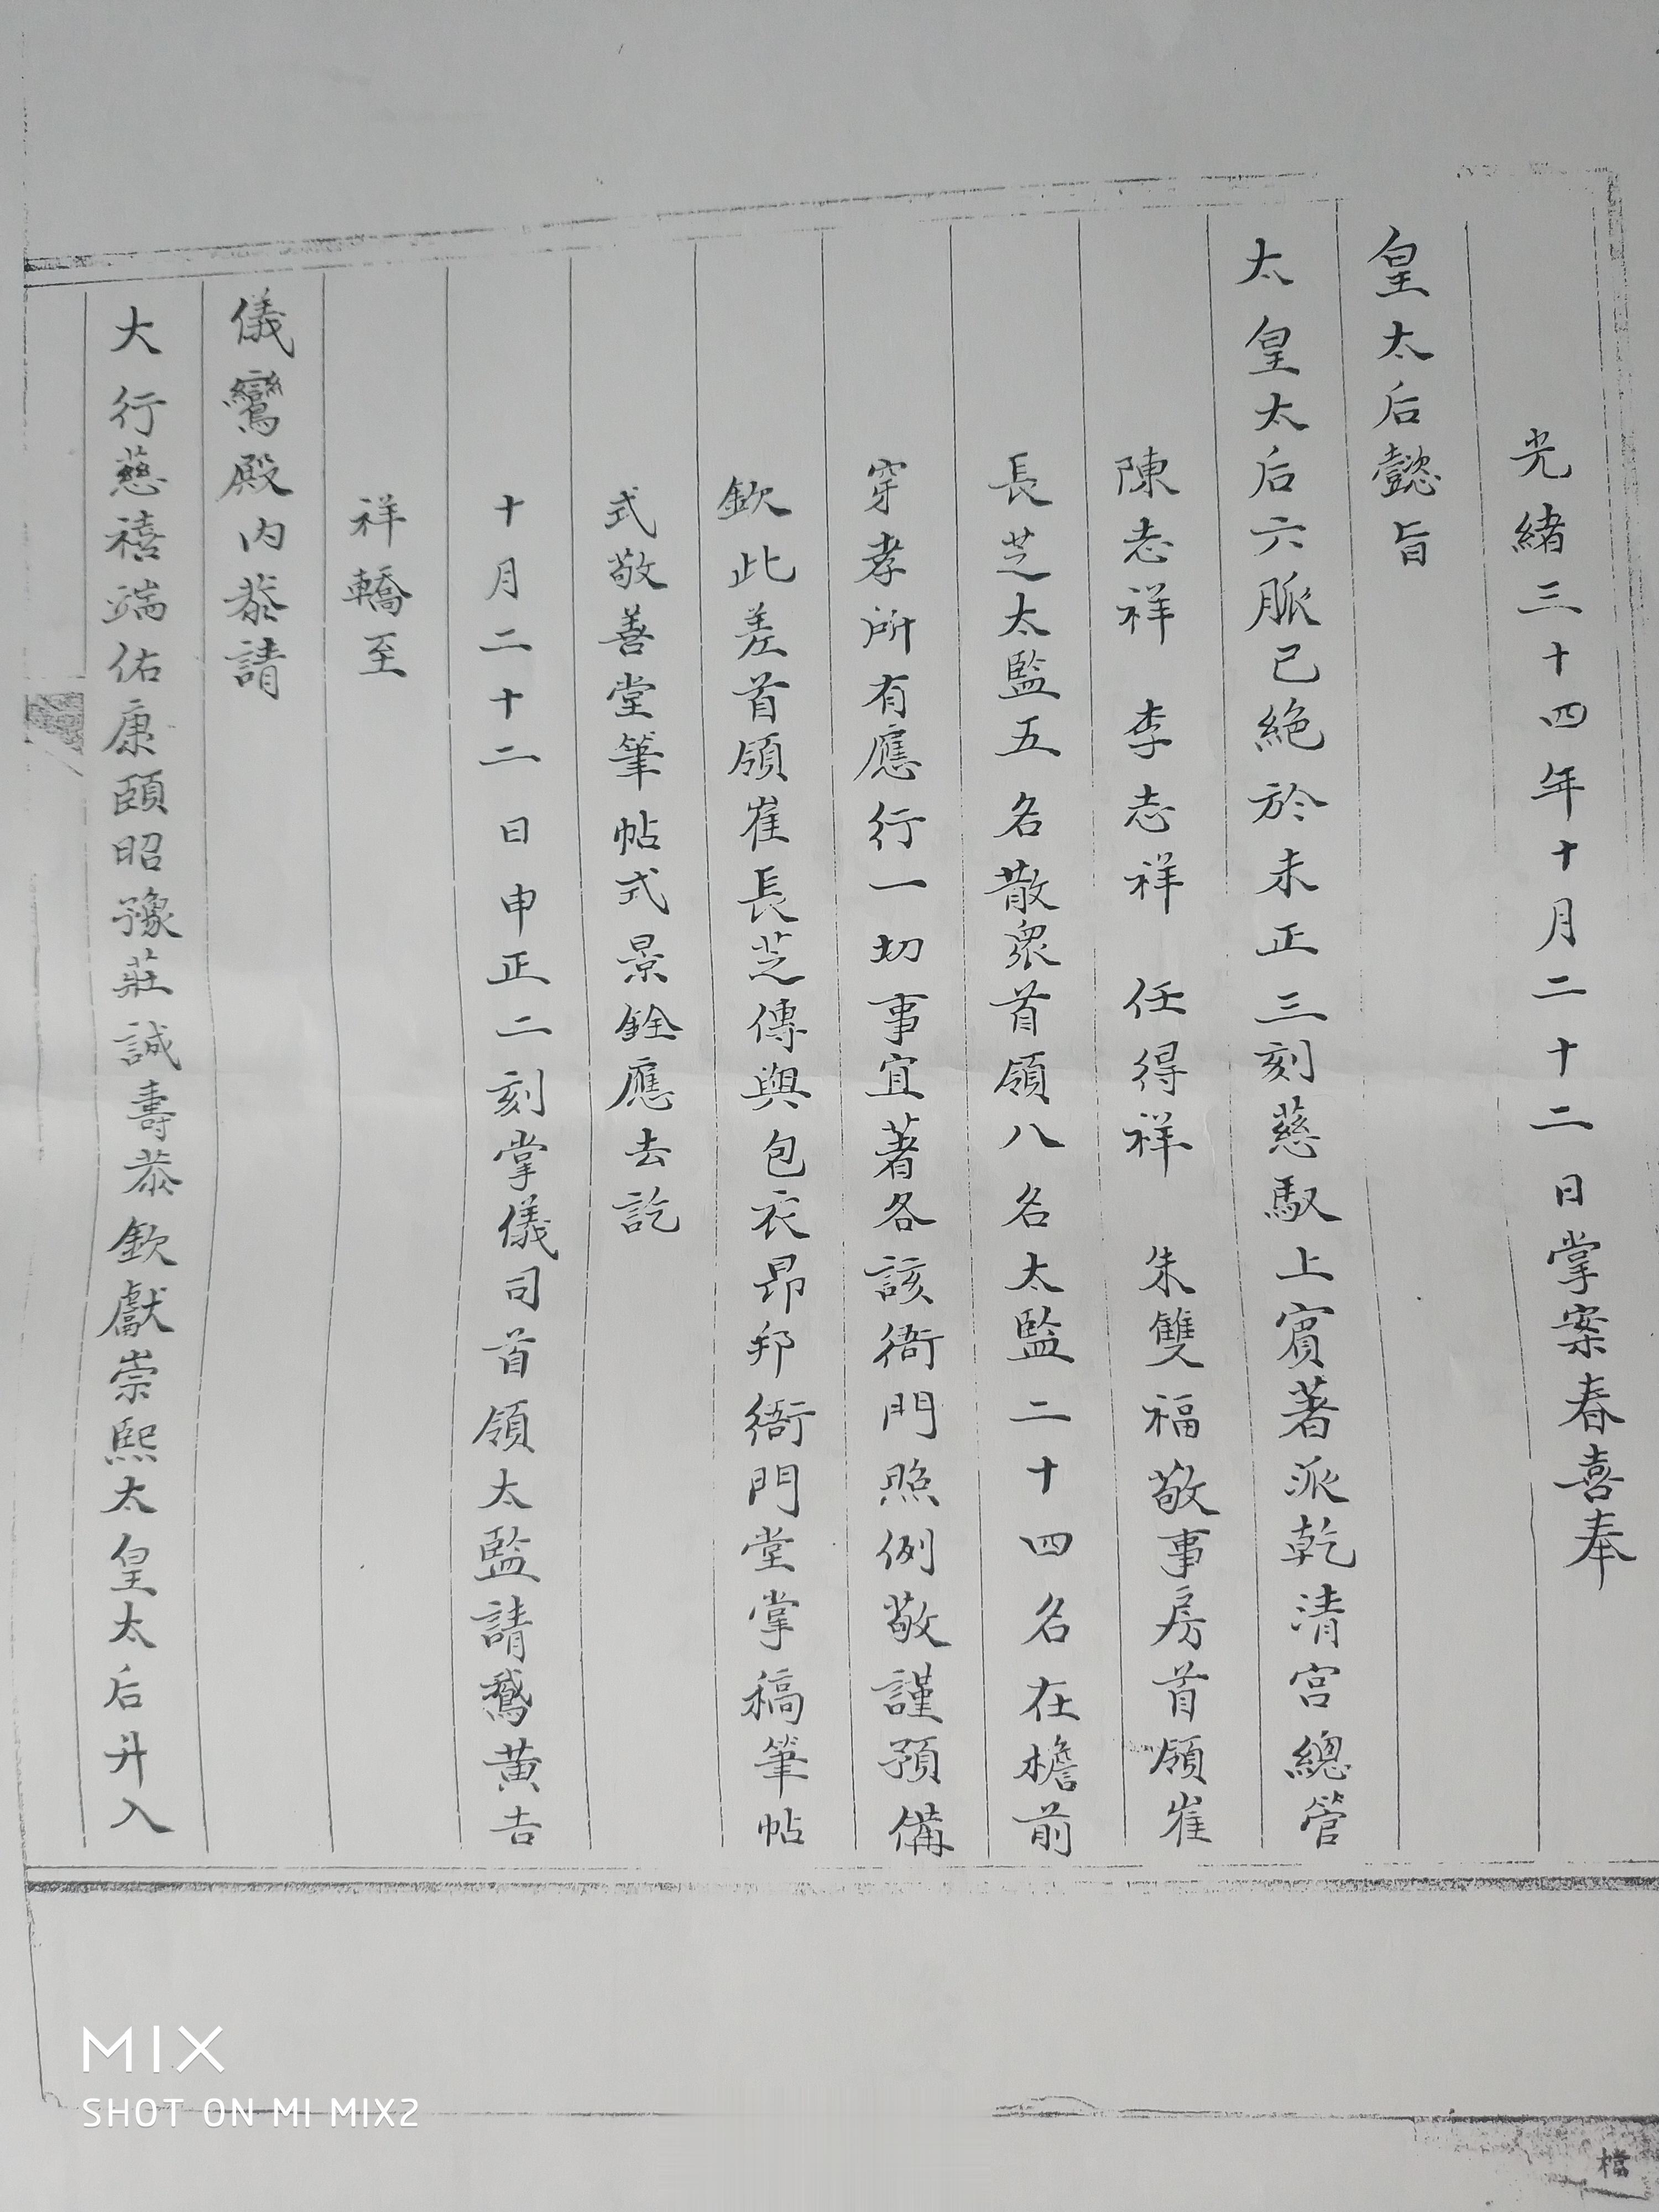 光緒三十四年十月二十二日掌案春喜奉
皇太后懿旨
太皇太后六脈已絕於未正三刻慈馭上賓著派乾清宮總管
陳志祥 李志祥 任得祥 朱雙福敬事房首領崔
長芝太監五名散眾首領八名太監二十四名在檐前
穿孝所有應行一切事宜著各該衙門照例敬謹預備
欽此差首領崔長芝傳與包衣昂邦衙門堂掌稿筆帖
式敬善堂筆帖式景銓應去訖
十月二十二日申正二刻掌儀司首領太監請鵞黃吉
祥轎至
儀鸞殿內恭請
大行慈禧端佑康頤昭豫莊誠壽恭欽獻崇熙太皇太后升入
檔
MIX
SHOT ON MI MIX2